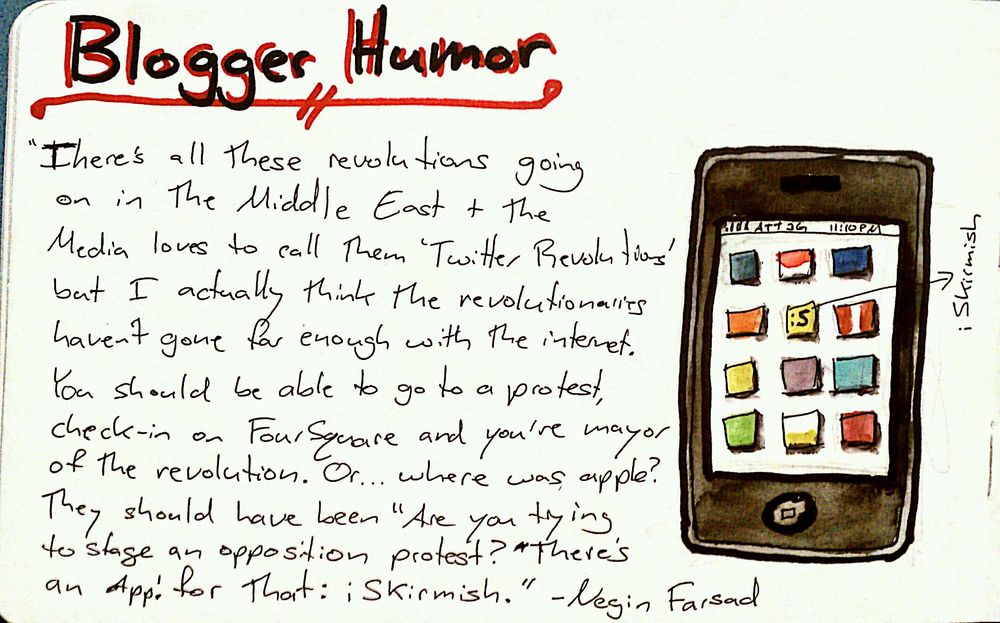 Blogger Humor
"There's all these revolutions going
on in the Middle East + the
Media loves to call them 'Twitter Revolutions'
but I actually think the revolutionaries
haven't gone far enough with the internet.
You should be able to go to a protest,
check-in on FourSquare and you're mayor
of the revolution. Or... where was apple?
They should have been "Are you trying
to stage an opposition protest? "There's
an App! for that: iSkirmish." -Negin Farsad
ATT 3G 11:10PM
:S
iSkirmish